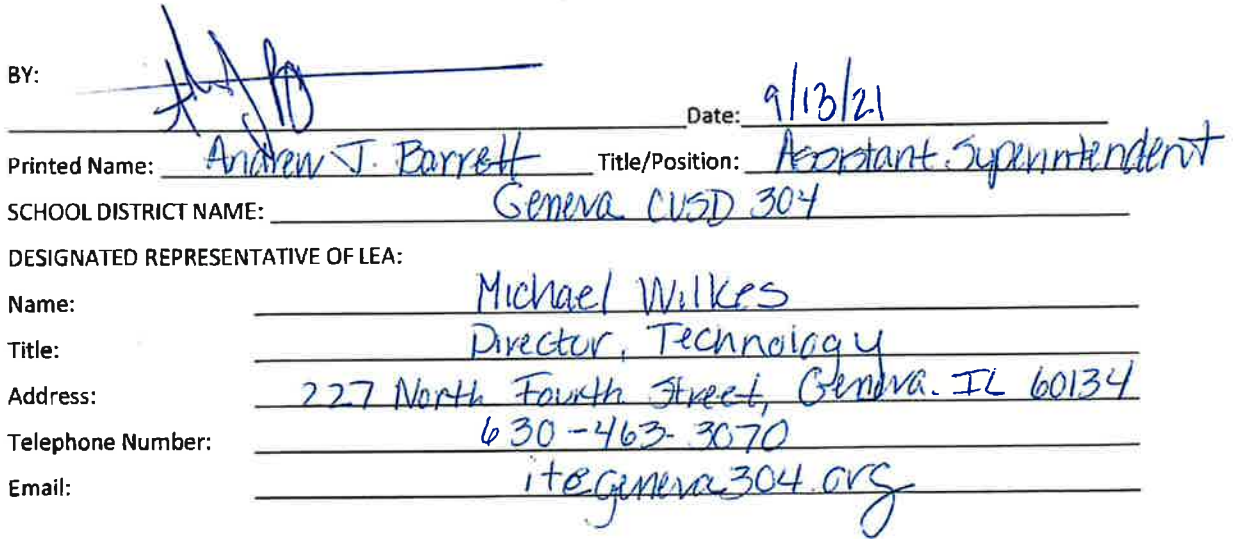 BY:
Date: 9/13/21
Printed Name: Andrew J. Barrett Title/Position: Assistant Superintendent
SCHOOL DISTRICT NAME: Geneva CUSD 304
DESIGNATED REPRESENTATIVE OF LEA:
Name: Michael Wilkes
Title: Director, Technology
Address: 227 North Fourth Street, Geneva. IL 60134
Telephone Number: 630-463-3070
Email: it@geneva304.org